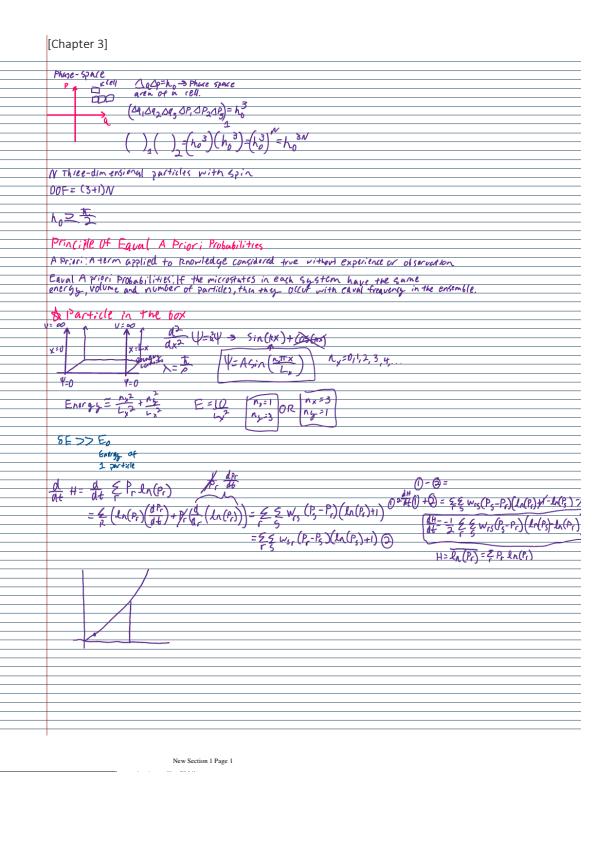 [Chapter 3]
Phase-space
P
cell
Q
ΔqΔp=h₀ → Phase space
area of a cell.
(Δq₁Δq₂Δq₃ΔP₁ΔP₂ΔP₃)₁=h₀³
( )₁( )₂=(h₀³)(h₀³)=(h₀³)ᴺ=h₀³ᴺ
N Three-dimensional particles with spin
DOF=(3+1)N
h₀≥ħ/2
Principle Of Equal A Priori Probabilities
A Priori: A term applied to knowledge considered true without experience or observation
Equal A Priori Probabilities: If the microstates in each system have the same
energy, volume and number of particles, then they occur with equal frequency in the ensemble.
Particle in the box
V=∞ V=∞
x=0
Ψ=0 Ψ=0
d²/dx² Ψ=λΨ → sin(kx)+cos(kx)
Ψ=Asin(nₓπx/Lₓ) nₓ=0,1,2,3,4,...
Energy = nₓ²/Lₓ²+n_y²/L_y²
E=10/Lₓ²
nₓ=1
n_y=3
OR
nₓ=3
n_y=1
δE >> E₀
Energy of
1 particle
d/dt H = d/dt Σ Pᵣ ln(Pᵣ)
=Σᵣ(ln(Pᵣ)(dPᵣ/dt)+Pᵣ(d/dt(ln(Pᵣ)))=ΣᵣΣₛ Wᵣₛ(Pₛ-Pᵣ)(ln(Pᵣ)+1) ①
=ΣᵣΣₛ Wₛᵣ(Pᵣ-Pₛ)(ln(Pₛ)+1) ②
①-②=
dH/dt=-1/2 ΣᵣΣₛ Wᵣₛ(Pₛ-Pᵣ)(ln(Pₛ)-ln(Pᵣ))
H=ln(Pᵣ)=Σᵣ Pᵣ ln(Pᵣ)
New Section 1 Page 1